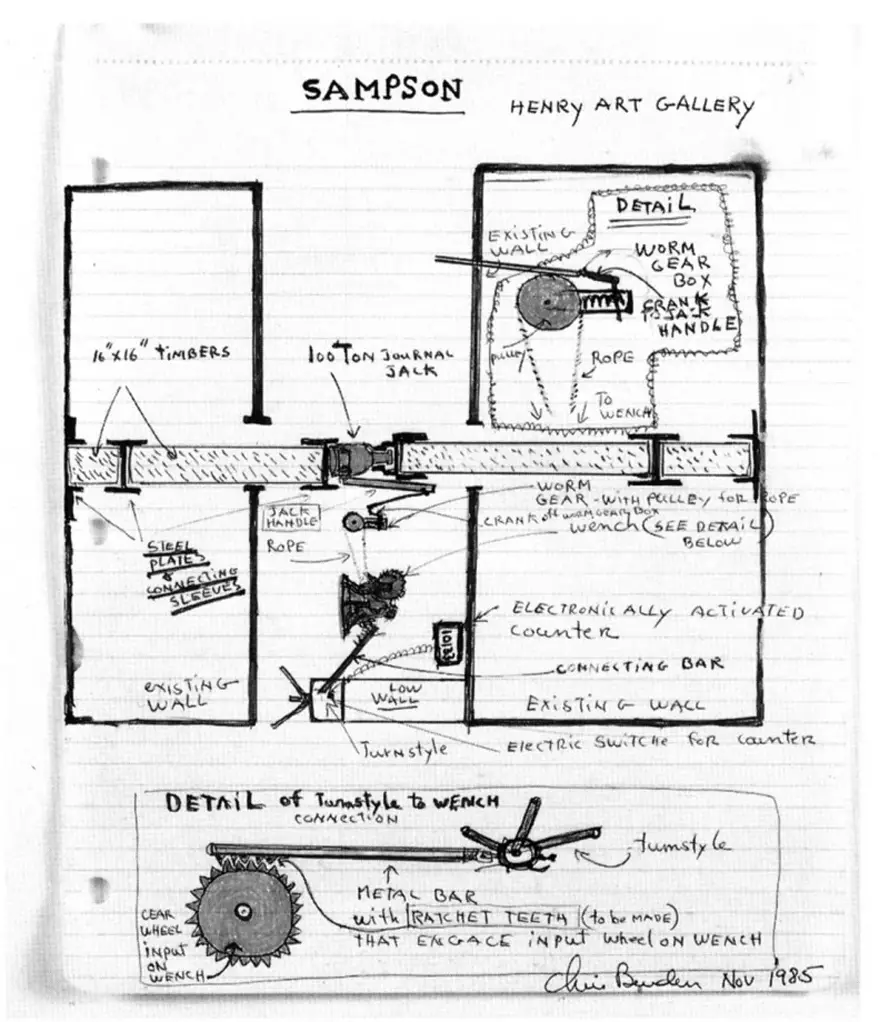 SAMPSON
HENRY ART GALLERY
DETAIL
EXISTING
WALL
WORM
GEAR
BOX
CRANK
TO JACK
HANDLE
PULLEY
ROPE
TO
WENCH
16"X16" TIMBERS
100 TON JOURNAL
JACK
WORM
GEAR - WITH PULLEY FOR ROPE
CRANK off WORM GEAR BOX
WENCH (SEE DETAIL
BELOW)
JACK
HANDLE
ROPE
STEEL
PLATES
&
CONNECTING
SLEEVES
ELECTRONICALLY ACTIVATED
COUNTER
CONNECTING BAR
EXISTING
WALL
LOW
WALL
EXISTING WALL
TURNSTYLE
ELECTRIC SWITCHE FOR COUNTER
DETAIL of Turnstyle to WENCH
CONNECTION
turnstyle
METAL BAR
with RATCHET TEETH (to be MADE)
THAT ENGAGE INPUT wheel ON WENCH
GEAR
WHEEL
INPUT
ON
WENCH
Chris Burden Nov 1985